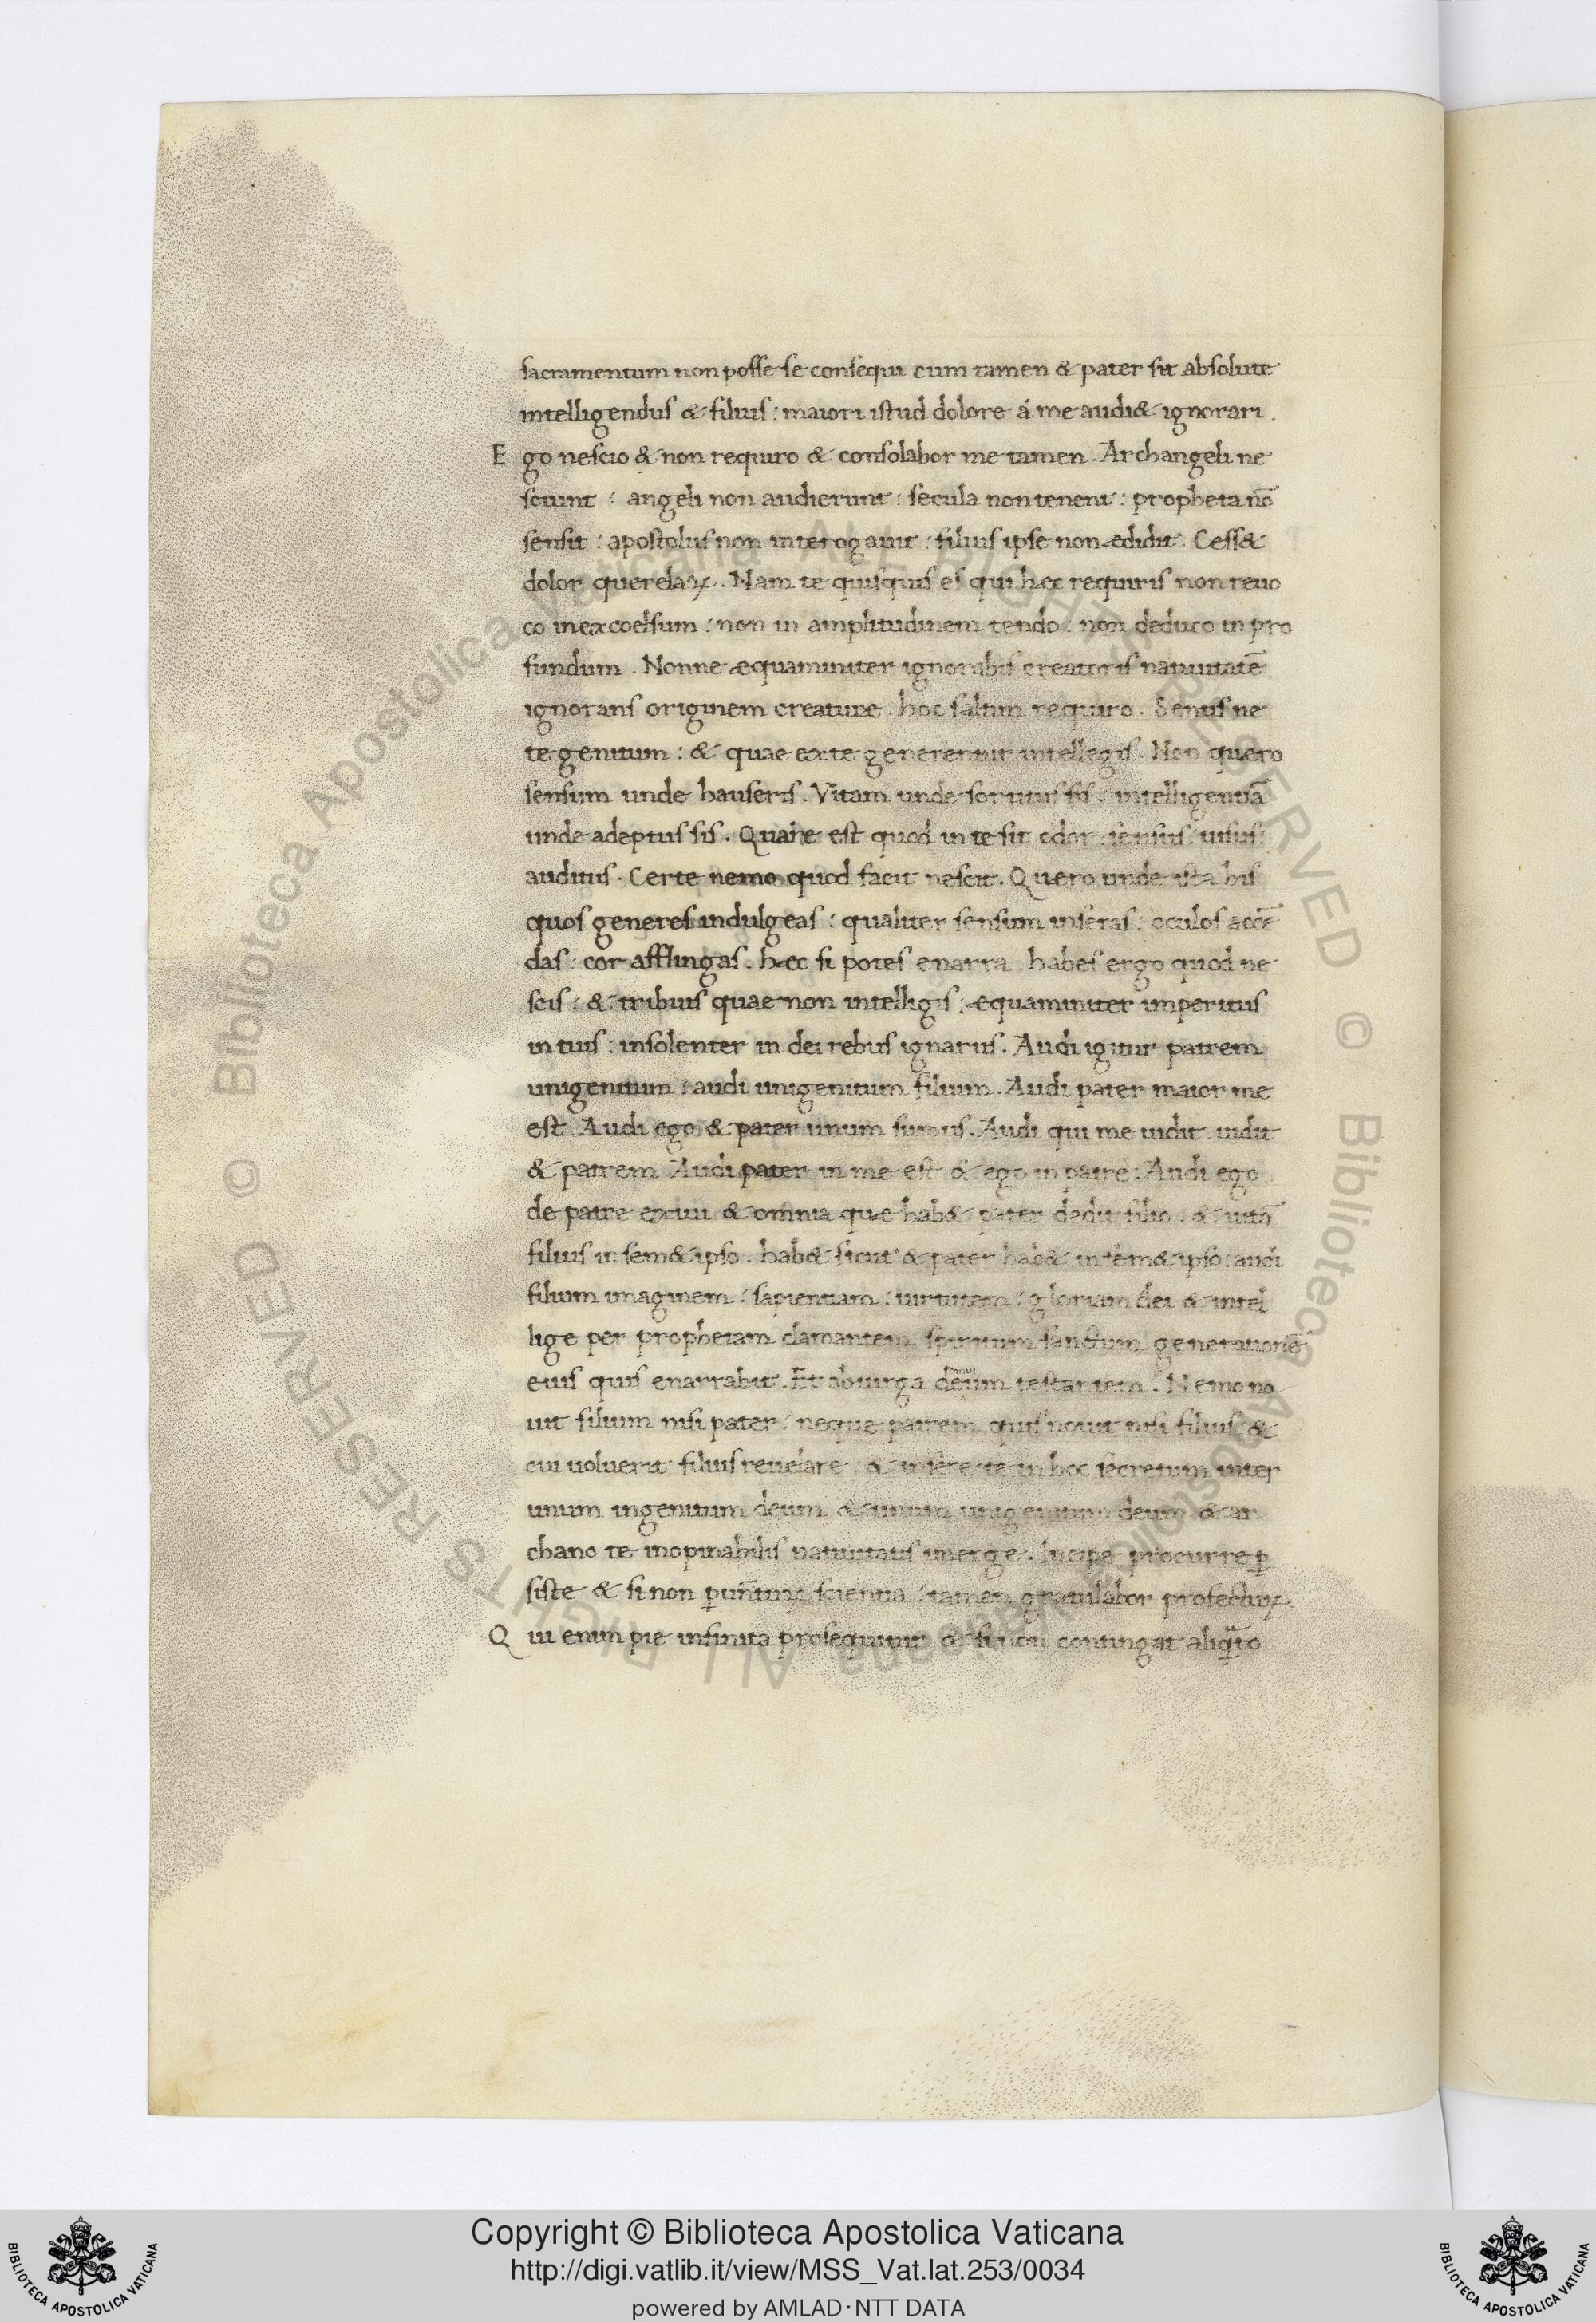 sacramentum non posse se consequi cum tamen & pater sit absolute
intelligendus & filius : maiori istud dolore á me audi& ignorari .
E go nescio & non requiro & consolabor me tamen . Archangeli ne
sciunt : angeli non audierunt : secula non tenent : propheta nō
sensit : apostolus non interogauit : filius ipse non edidit . Cess&
dolor querelaꝝ . Nam te quisquis es qui hęc requiris non reuo
co in excoelsum : non in amplitudinem tendo : non deduco in pro
fundum . Nonne ęquanimiter ignorabis creatoris natiuitatē
ignorans originem creature . hoc saltim requiro . Sentis ne
te genitum : & quae ex te generentur intellegis . Non quero
sensum unde hauseris . Vitam unde sortitus sis : intelligentiā
unde adeptus sis . Quale est quod in te sit odor : sensus : uisus :
auditus . Certe nemo quod facit nescit . Quero unde ista his
quos generes indulgeas : qualiter sensum inseras : oculos accē
das : cor afflingas . hęc si potes enarra . habes ergo quod ne
scis : & tribuis quae non intelligis : ęquanimiter imperitus
in tuis : insolenter in dei rebus ignarus . Audi igitur patrem
unigenitum : audi unigenitum filium . Audi pater maior me
est . Audi ego & pater unum sumus . Audi qui me uidit uidit
& patrem . Audi pater in me est & ego in patre . Audi ego
de patre exiui & omnia quę hab& pater dedit filio : & uitā
filius in sem& ipso . hab& sicut & pater hab& in sem& ipso : audi
filium imaginem : sapientiam : uirtutem : gloriam dei & intel
lige per prophetam clamantem spiritum sanctum generationē
eius quis enarrabit . Et obiurga testantem . Nemo no
uit filium nisi pater : neque patrem quis nouit nisi filius & 
cui uoluerit filius reuelare : & insere te in hoc secretum inter
unum ingenitum deum & unum unigenitum deum & ar
chano te inopinabilis natiuitatis imerge . Incipe procurre ꝑ
siste & si non scientia : tamen gratulabor profectuꝝ
Q ui enim pie infinita prosequitur & si non contingat
Copyright © Biblioteca Apostolica Vaticana
http://digi.vatlib.it/view/MSS_Vat.lat.253/0034
powered by AMLAD·NTT DATA
BIBLIOTECA APOSTOLICA VATICANA
BIBLIOTECA APOSTOLICA VATICANA
© Biblioteca Apostolica Vaticana ALL RIGHTS RESERVED © Biblioteca Apostolica Vaticana ALL RIGHTS RESERVED